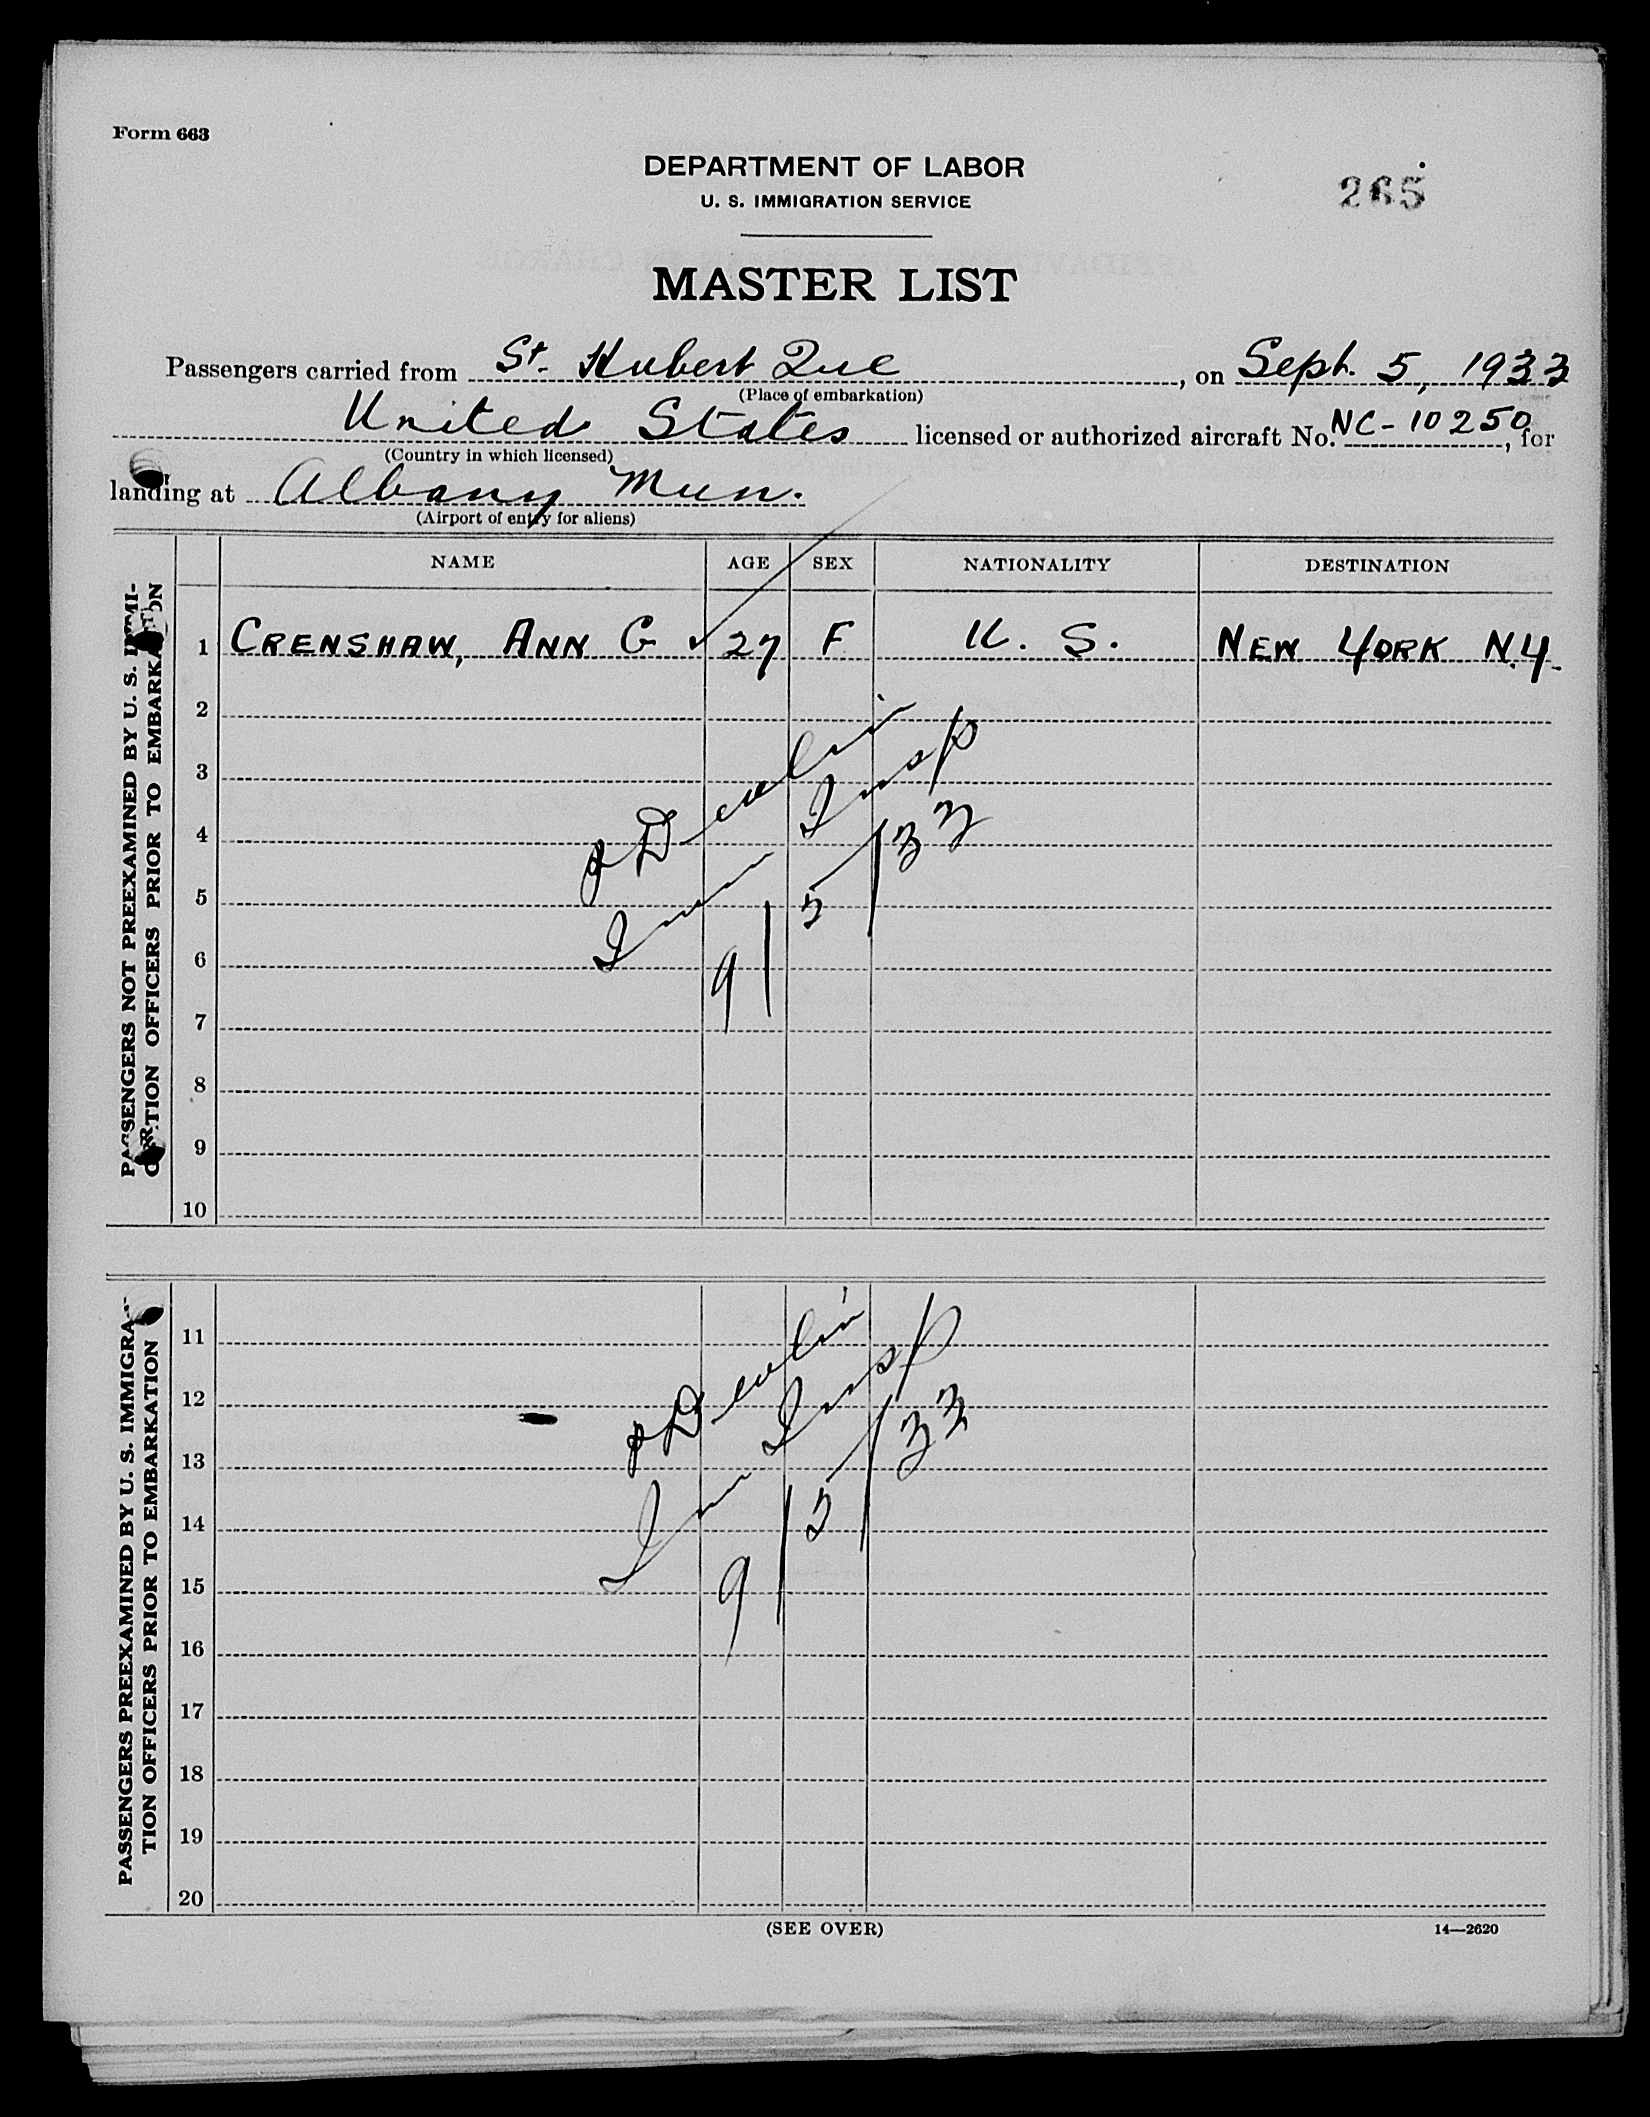 Form 663
DEPARTMENT OF LABOR
U. S. IMMIGRATION SERVICE
265
MASTER LIST
Passengers carried from St. Hubert Que, on Sept. 5, 1933
(Place of embarkation)
United States licensed or authorized aircraft No. NC-10250, for
(Country in which licensed)
landing at Albany Mun.
(Airport of entry for aliens)
NAME AGE SEX NATIONALITY DESTINATION
PASSENGERS NOT PREEXAMINED BY U. S. IMMI-
GRATION OFFICERS PRIOR TO EMBARKATION
1 CRENSHAW, ANN G ✓ 27 F U. S. NEW YORK N.Y.
2
3
4
5
6
7
8
9
10
Devlin
Imm Insp
9/5/33
PASSENGERS PREEXAMINED BY U. S. IMMIGRA-
TION OFFICERS PRIOR TO EMBARKATION
11
12
13
14
15
16
17
18
19
20
Devlin
Imm Insp
9/5/33
(SEE OVER)
14—2620